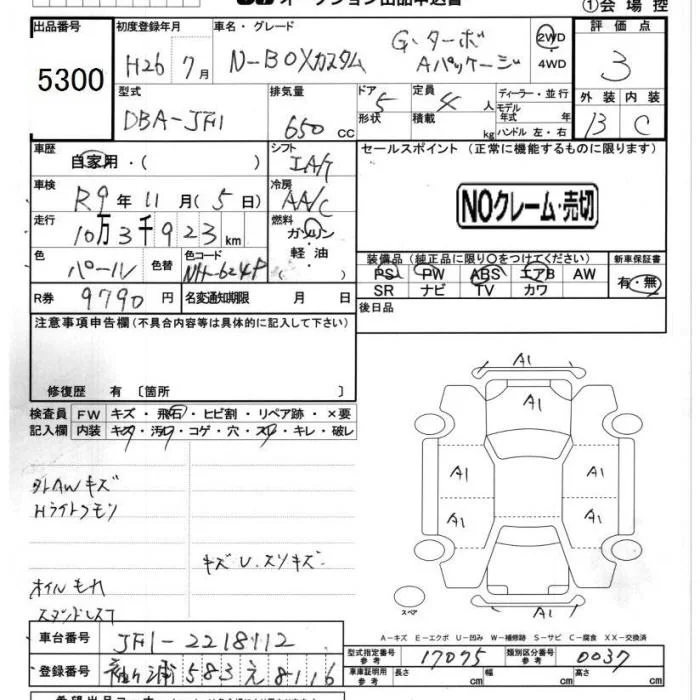 ①会場控
出品番号 初度登録年月 車名・グレード 評価点
5300 H26年7月 N-BOXカスタム G・ターボ Aパッケージ 2WD・4WD 3
型式 排気量 ドア 定員 ディーラー・並行 外装 内装
DBA-JF1 650cc 5 4人 形状 積載 kg モデル年式 年 ハンドル 左・右 B C
車歴 シフト セールスポイント (正常に機能するものに限ります)
自家用・( ) IA/T
車検 冷房
R9年11月(5日) AA/C NOクレーム・売切
走行 燃料
10万3千923km ガソリン・軽油・( )
色 色替 色コード 装備品 (純正品に限り○をつけてください) 新車保証書
パール NH-624P PS PW ABS エアB AW 有・無
SR ナビ TV カワ
R券 9790円 名変通知期限 月 日 後日品
注意事項申告欄 (不具合内容等は具体的に記入して下さい)
修復歴 有 〔箇所 〕
検査員 FW キズ・飛石・ヒビ割・リペア跡・×要
記入欄 内装 キズ・汚レ・コゲ・穴・スレ・キレ・破レ
A1
A1
A1 A1
A1 A1
A1
外AWキズ
Hライトクモリ
キズU.スリキズ
オイルもれ
スタンドレスT
スペア
A-キズ E-エクボ U-凹み W-補修跡 S-サビ C-腐食 XX-交換済
車台番号 JF1-2218112 型式指定番号 参考 17075 類別区分番号 参考 0037
登録番号 袖ヶ浦583え8116 車庫証明用 参考 長さ cm 幅 cm 高さ cm